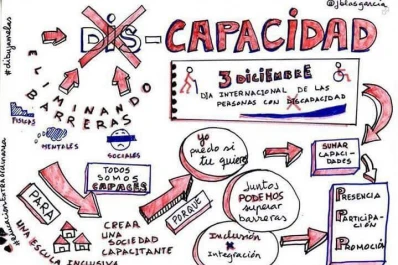 @jblasgarcia
#dibujamelas
DIS-CAPACIDAD
ELIMINANDO
BARRERAS
FÍSICAS
MENTALES
SOCIALES
3 DICIEMBRE
DÍA INTERNACIONAL DE LAS
PERSONAS CON DISCAPACIDAD
TODOS
SOMOS
CAPACES
PARA
UNA ESCUELA INCLUSIVA
CREAR
UNA
SOCIEDAD
CAPACITANTE
PORQUE
yo
puedo si
tú quieres
Juntos
PODEMOS
superar
barreras
Inclusión
x
Integración
SUMAR
CAPACI-
DADES
PRESENCIA
PARTICIPA-
CIÓN
PROMOCIÓN